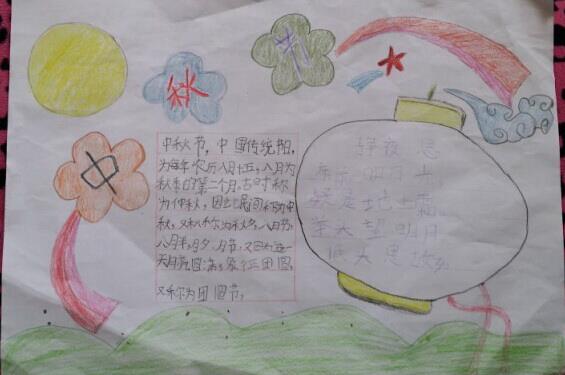 中秋节
中秋节，中国传统节，
为每年农历八月十五，八月为
秋季的第二个月，古时称
为仲秋，因此民间称为中
秋，又称为秋夕，八月节，
八月半，月夕，月节，又因为这一
天月亮圆满，象征团圆，
又称为团圆节。
静夜思
床前明月光
疑是地上霜
举头望明月
低头思故乡